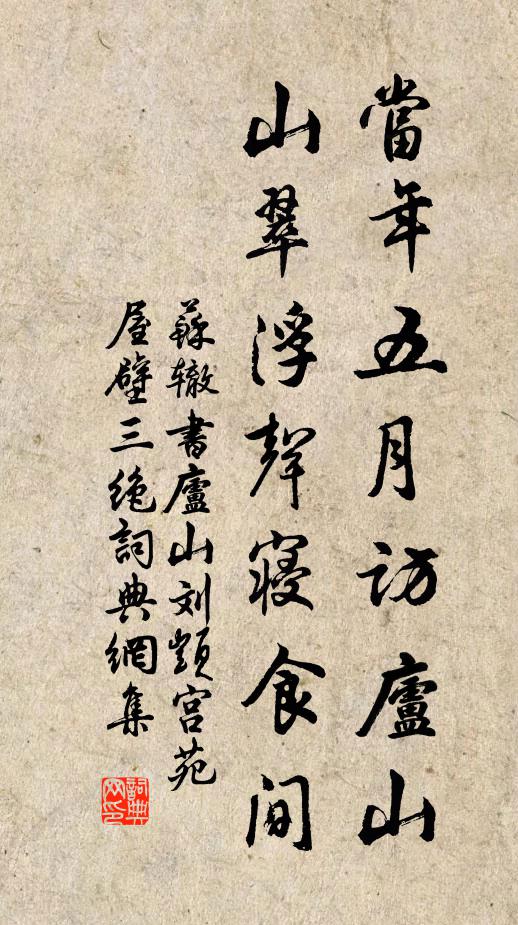 當年五月訪廬山
山翠溪聲寢食間
蘇轍書廬山刘顗宫苑
屋壁三绝詞典網集
詞典
网印